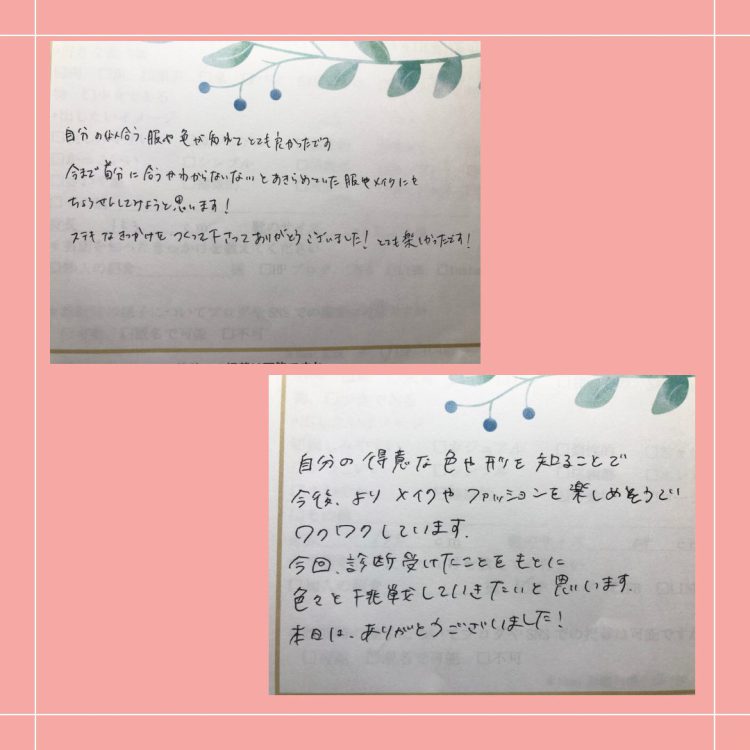 自分の似合う服や色が知れてとても良かったです
今まで自分に合うやわからないないとあきらめていた服やメイクにも
ちょうせんしてみようと思います!
ステキなきっかけをつくって下さってありがとうございました! とても楽しかったです!
自分の得意な色や形を知ることで
今後、よりメイクやファッションを楽しめそうで
ワクワクしています。
今回、診断受けたことをもとに
色々と挑戦していきたいと思います。
本日は、ありがとうございました!